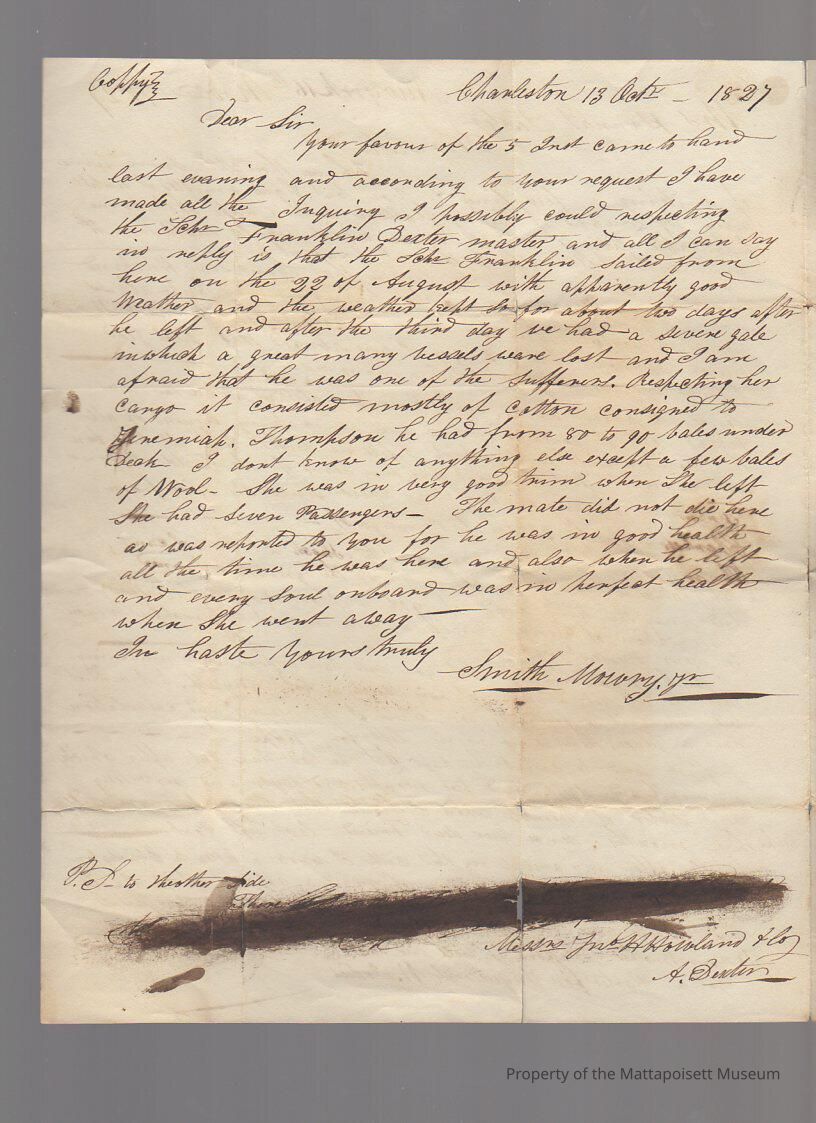 Coppy
Charleston 13 Octr - 1827
Dear Sir
Your favour of the 5 Inst came to hand
last evaning and according to your request I have
made all the Inquiry I possibly could respecting
the Schr Franklin Dexter master and all I can say
in reply is that the Schr Franklin Sailed from
here on the 22 of August with apparently good
Weather and the weather kept so for about two days after
he left and after the third day we had a severe gale
inwhich a great many vessels ware lost and I am
afraid that he was one of the Sufferers. Respecting her
cargo it consisted mostly of cotton consigned to
Jeremiah. Thompson he had from 80 to 90 bales under
Deck I dont know of anything else except a few bales
of Wool - She was in very good trim when She left
She had Seven Passengers - The mate did not die here
as was reported to you for he was in good health
all the time he was here and also when he left
and every Soul onboard was in perfect health
when She went away
In haste Yours truly
Smith Mowry. Jr
P.S - to theother Side
There
Messrs Jno H Howland & Co
A. Dexter
Property of the Mattapoisett Museum